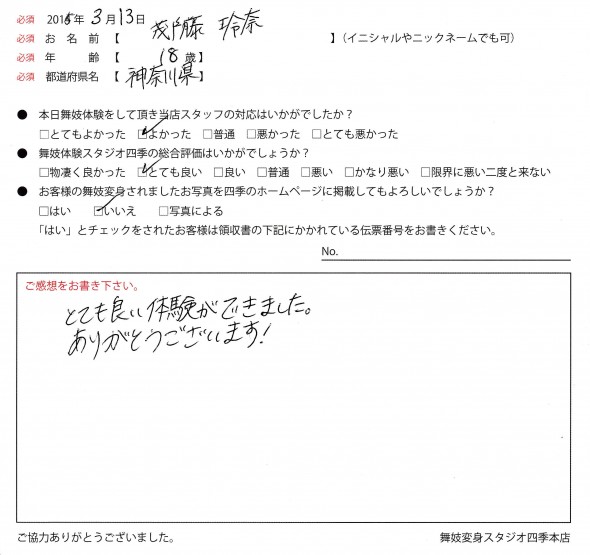 必須 2015年3月13日
必須 お名前【 茂藤 玲奈 】(イニシャルやニックネームでも可)
必須 年齢【 18歳】
必須 都道府県名【 神奈川県】
● 本日舞妓体験をして頂き当店スタッフの対応はいかがでしたか?
□とてもよかった ☑よかった □普通 □悪かった □とても悪かった
● 舞妓体験スタジオ四季の総合評価はいかがでしょうか?
□物凄く良かった ☑とても良い □良い □普通 □悪い □かなり悪い □限界に悪い二度と来ない
● お客様の舞妓変身されましたお写真を四季のホームページに掲載してもよろしいでしょうか?
□はい ☑いいえ □写真による
「はい」とチェックをされたお客様は領収書の下記にかかれている伝票番号をお書きください。
No.
ご感想をお書き下さい。
とても良い体験ができました。
ありがとうございます!
ご協力ありがとうございました。 舞妓変身スタジオ四季本店